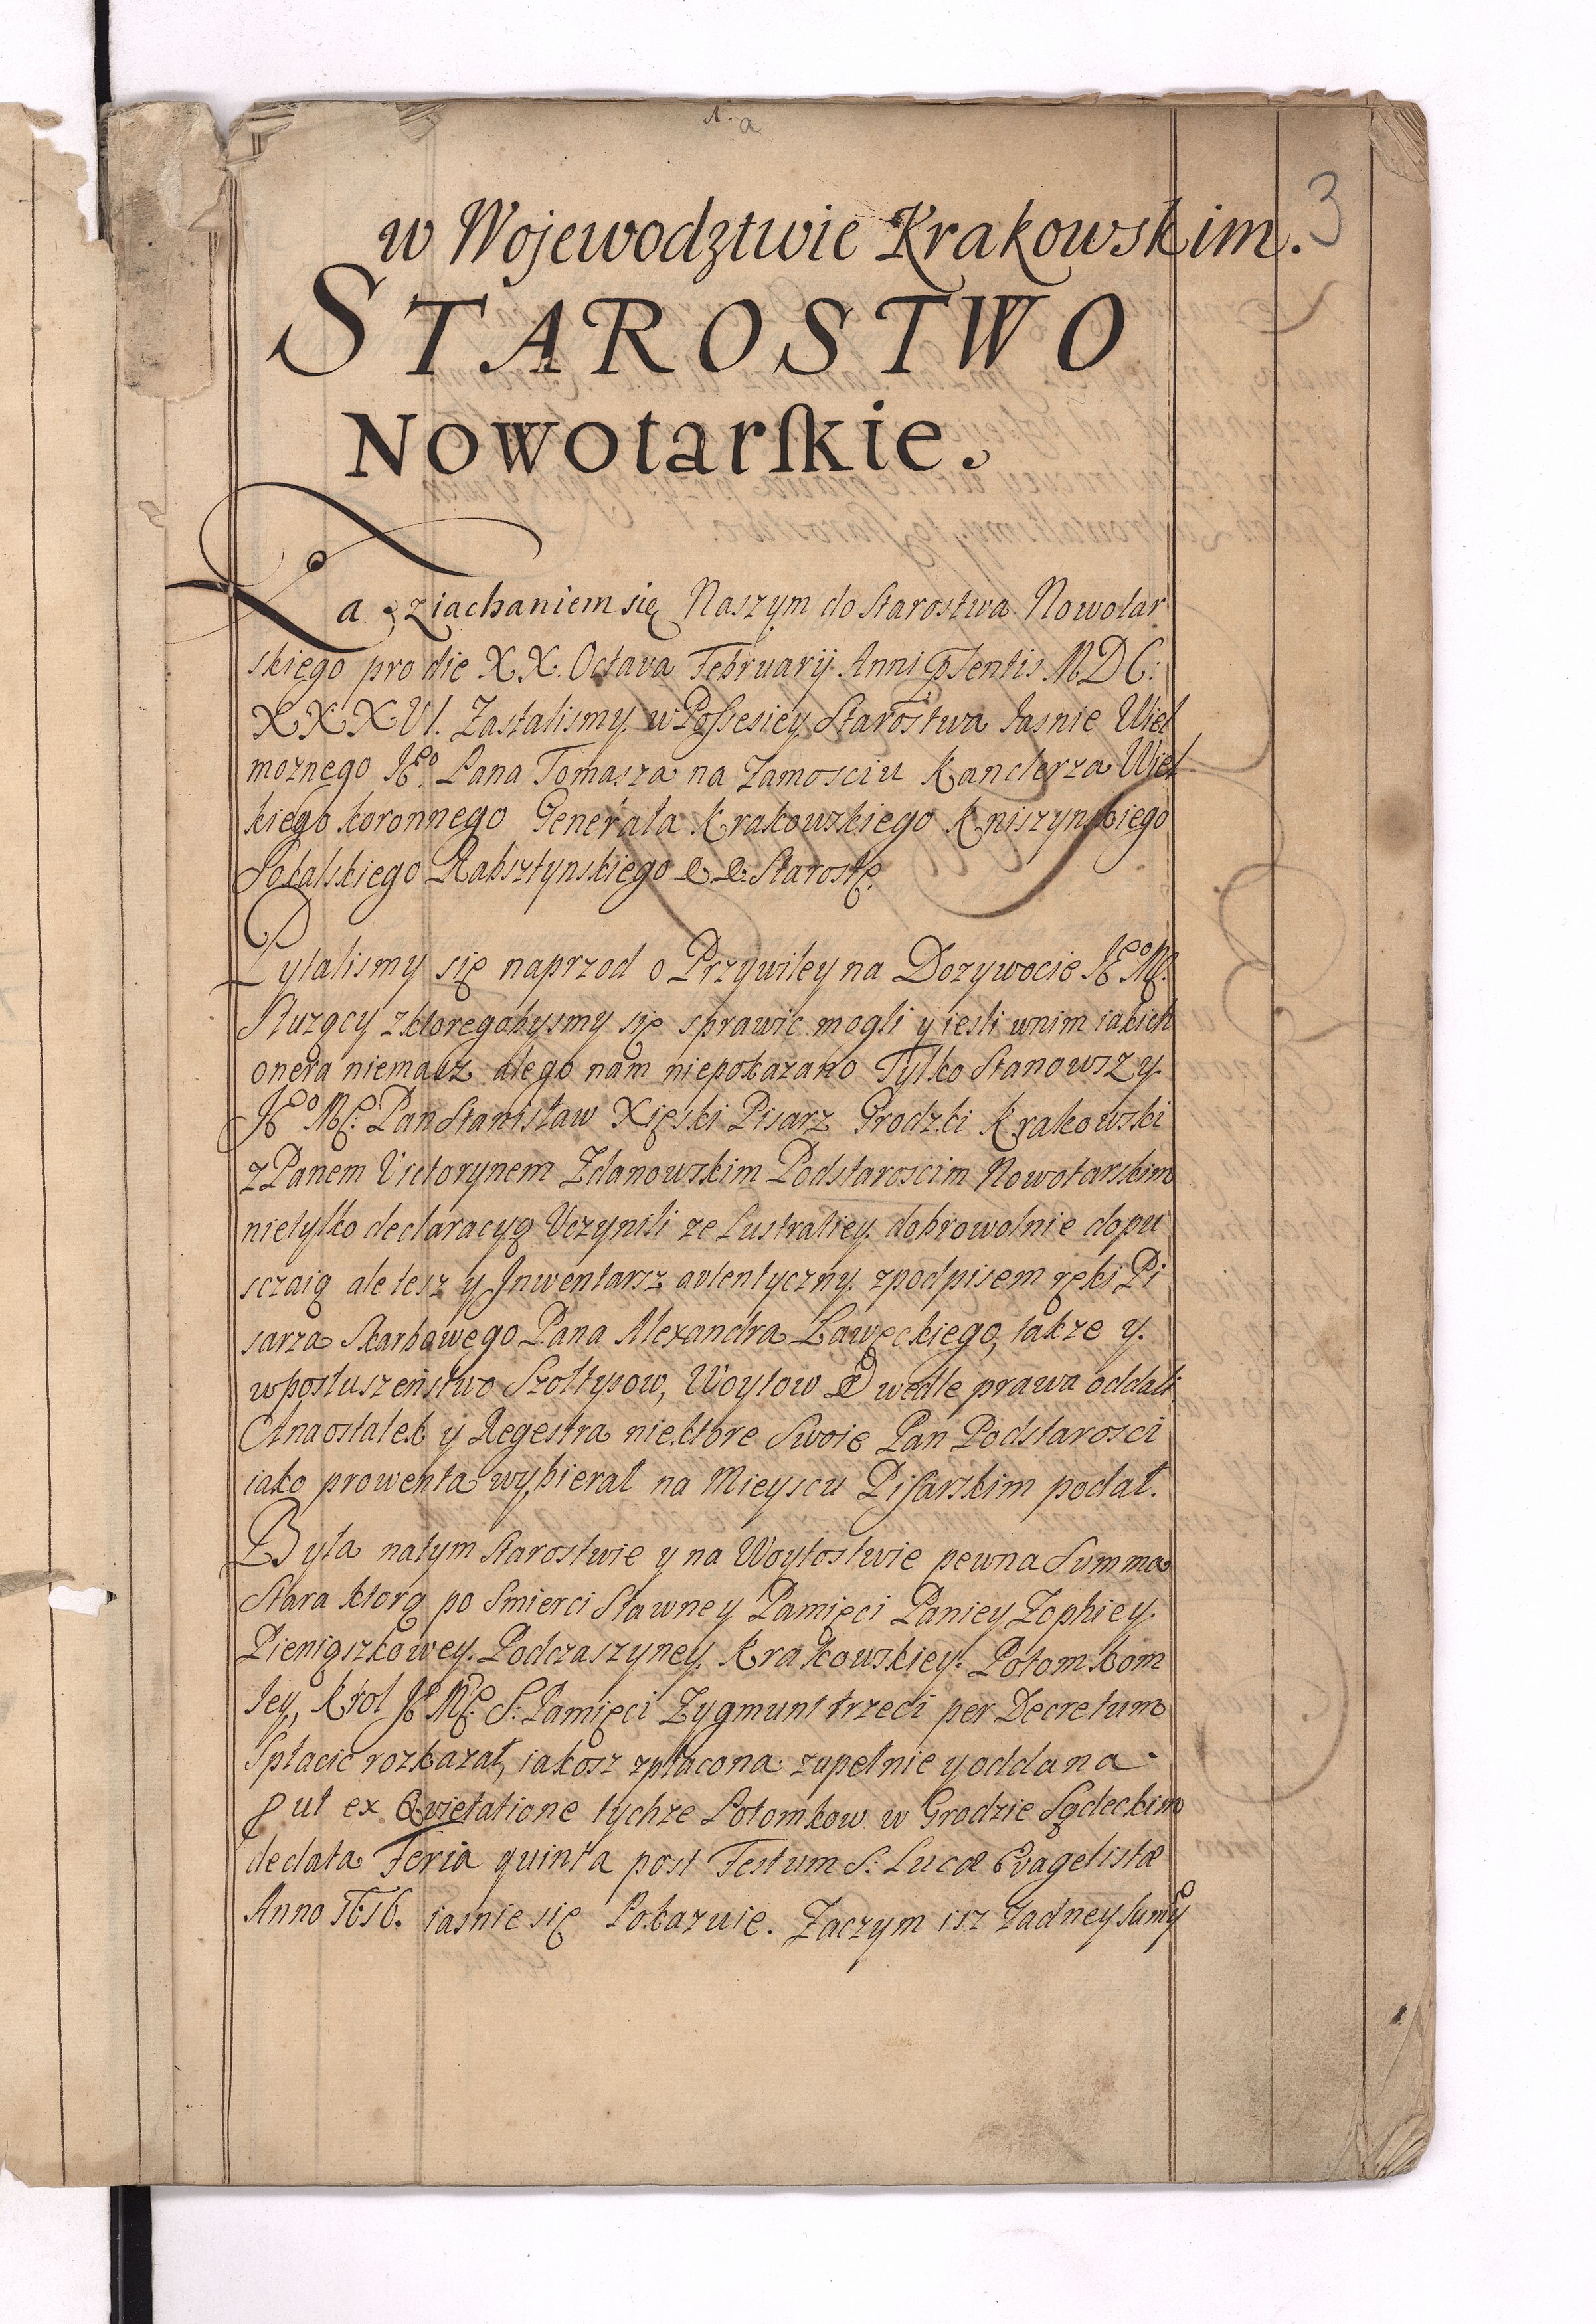 1. a
3
w Wojewodztwie Krakowskim.
STAROSTWO
Nowotarſkie.
Za ziachaniem się Naszym do Starostwa Nowotar
skiego pro die XX. Octava Februarij Anni pſentis MDC:
XXXVI. Zastalismy w Poſſesiey Starostwa Jasnie Wiel
moznego JEº Pana Tomasza na Zamosciu Kanclerza Wiel
kiego koronnego Generała Krakowskiego Kniszynskiego
Sokalskiego Rabsztynskiego &. &. Starostę.
Pytalismy się naprzod o Przywiley na Dozywocie JEº M.
Słuzący z ktoregobysmy się sprawic mogli y iesli w nim iakich
onera niemasz. ale go nam niepokazano Tylko Stanowszy
JEº M. Pan Stanisław Xięski Pisarz Grodzki Krakowski
z Panem Victorynem Zdanowskim Podstaroscim Nowotarskim
nietylko declaracyą Vczynili ze Lustratiey dobrowolnie dopu
sczaią ale tesz y Inwentarsz avtentyczny zpodpisem ręki Pi
sarza Skarbowego Pana Alexandra Ławęckiego, takze y
w posłuszeństwo Szołtysow, Woytow &c wedle prawa oddali
A na ostatek y Regestra niektore Swoie Pan Podstarosci
iako prowenta wybierał na Mieyscu Piſarskim podał.
Była natym Starostwie y na Woytostwie pewna Summa
Stara ktorą po Smierci Sławney Pamięci Paniey Zophiey
Pieniąszkowey Podczaszyney Krakowskiey Potomkom
Jey, Krol JE M. S: Pamięci Zygmunt trzeci per Decretum
Spłacic rozkazał, iakosz zpłacona zupełnie y oddana
put ex Qvietatione tychze Potomkow w Grodzie Sądeckim
dedata Feria quinta post Festum S: Lucæ Evagelistæ
Anno 1616. iasnie się Pokazuie. Zaczym isz Zadney sumy